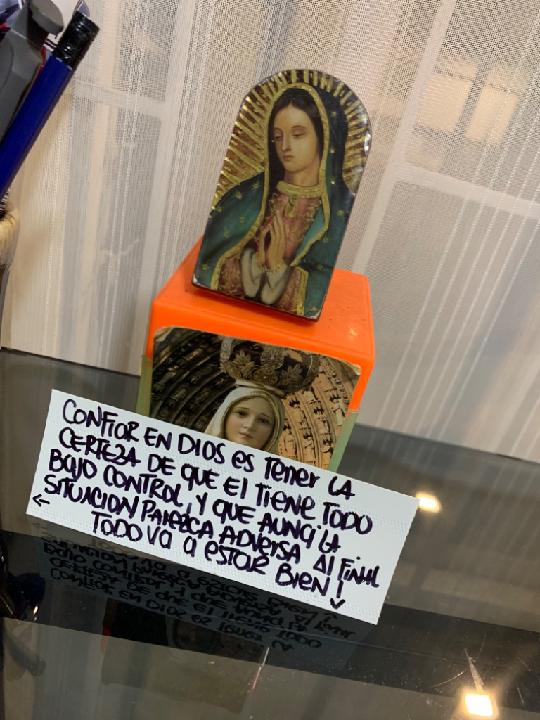 CONFIOR EN DIOS ES TENER LA
CERTEZA DE QUE EL TIENE TODO
BOJO CONTROL, Y QUE AUNQ. LA
SITUACION PAREZCA ADVERSA AL FINAL
TODO VA A ESTOR BIEN!